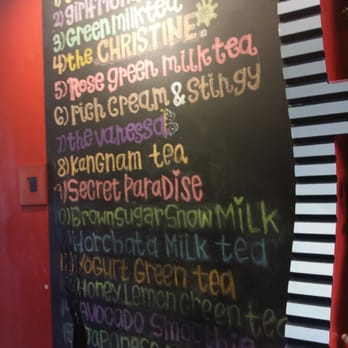 2) girlfriend
3) Green milk tea
4) the CHRISTINE
5) Rose green milk tea
6) Rich Cream & Stingy
7) the vanessa
8) Kangnam tea
9) Secret Paradise
10) Brown Sugar Snow Milk
Horchata Milk tea
Yogurt Green tea
Honey Lemon Green tea
Avocado Smoothie
Japanese